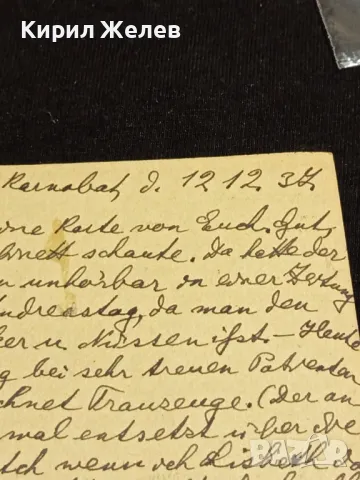 Кирил Желев
Karnobat, d. 12.12.37.
eine Karte von Euch. Gut,
schaute. Da hatte der
unhörbar in einer Zeitung
Andreastag, da man den
u. Nüssen ißt. - Heute
bei sehr treuen Patienten
Trauzeuge. (Der an
mal entsetzt über die
wenn ich Lisbeth
BAZAR